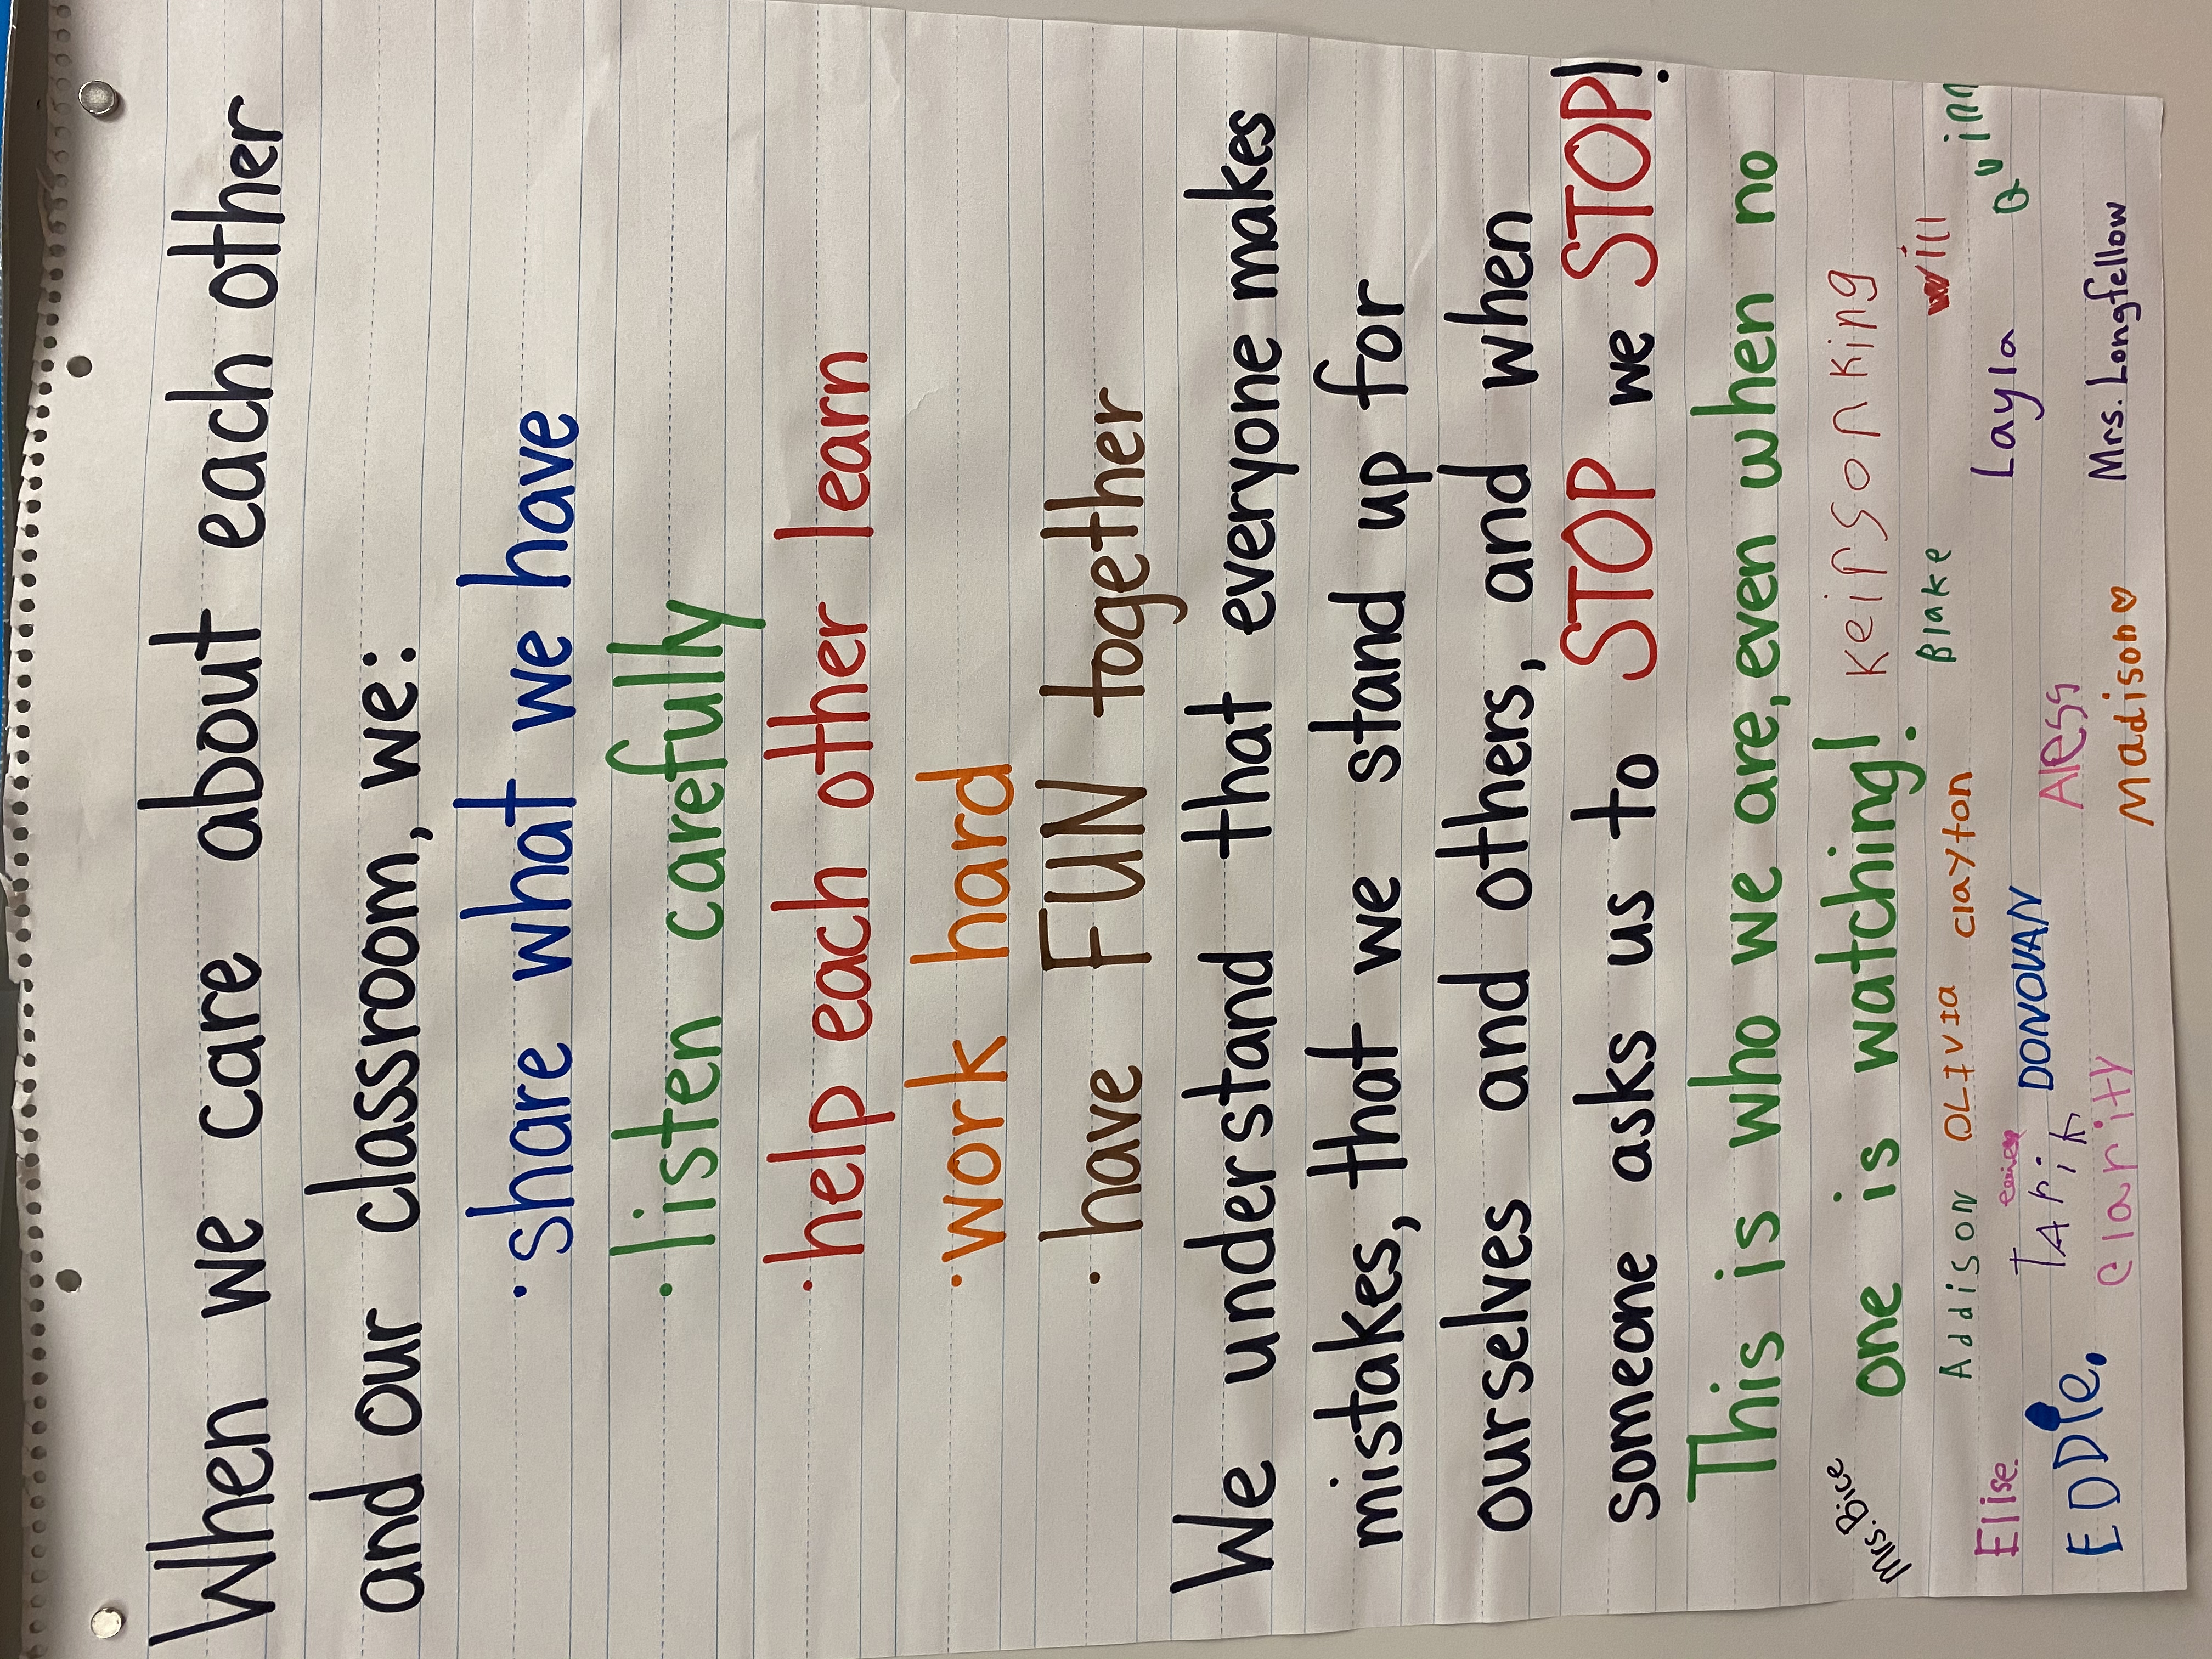 When we care about each other
and our classroom, we:
· share what we have
· listen carefully
· help each other learn
· work hard
· have FUN together
We understand that everyone makes
mistakes, that we stand up for
ourselves and others, and when
someone asks us to STOP we STOP!
This is who we are, even when no
one is watching!
Mrs. Bice
Keipson King
Addison OLIVIA clayton Blake will
Elise. DONOVAN Layla Quinn
TAriK Aless
EDDIe. clarity Mrs. Longfellow
Madison♡